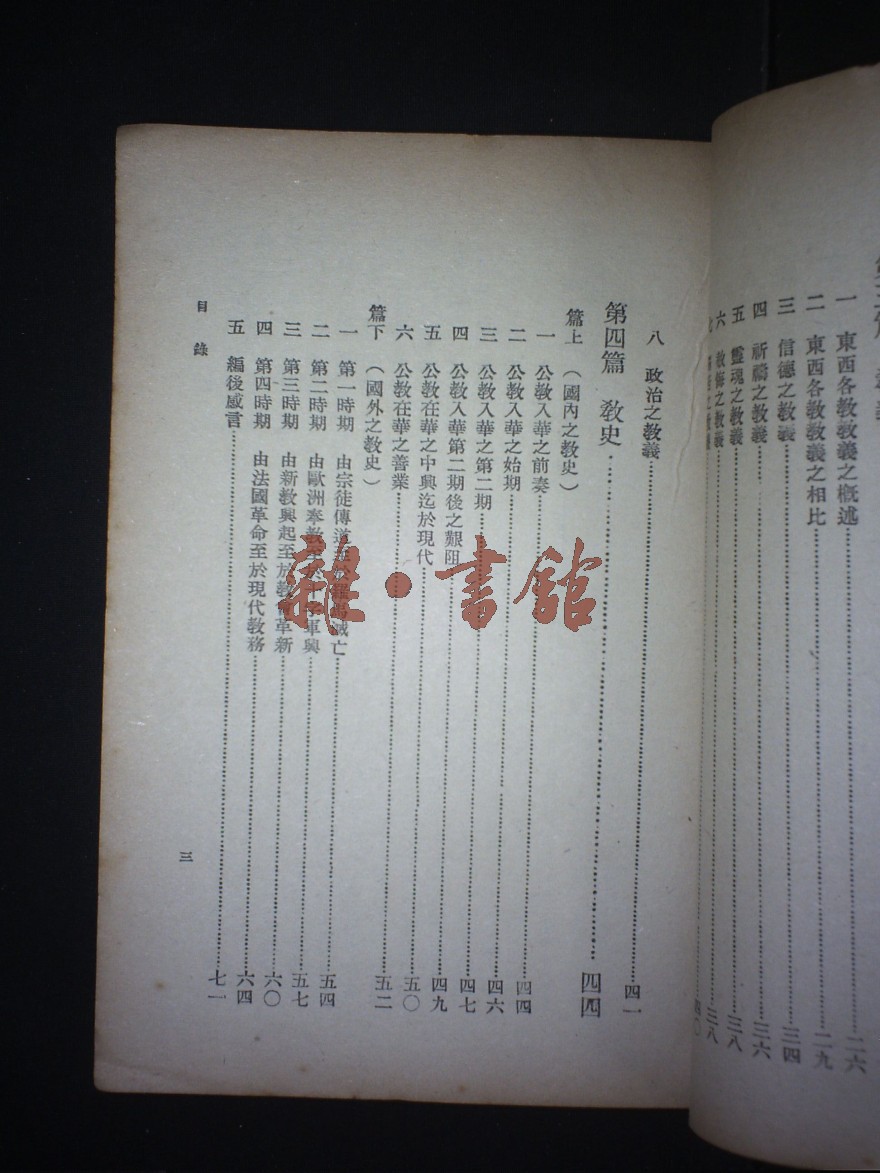 一 東西各教教義之概述……二六
二 東西各教教義之相比……二九
三 信德之教義……三四
四 祈禱之教義……三六
五 靈魂之教義……三八
六 教悔之教義……三八
八 政治之教義……四一
第四篇 教史……四四
篇上（國內之教史）
一 公教入華之前奏……四四
二 公教入華之始期……四四
三 公教入華之第二期……四六
四 公教入華第二期後之艱阻……四七
五 公教在華之中興迄於現代……四九
六 公教在華之善業……五〇
篇下（國外之教史）……五二
一 第一時期 由宗徒傳道 滅亡……五四
二 第二時期 由歐洲奉教 軍興……五七
三 第三時期 由新教興起至於教會革新……六〇
四 第四時期 由法國革命至於現代教務……六四
五 編後感言……七一
目錄
三
雜·書館